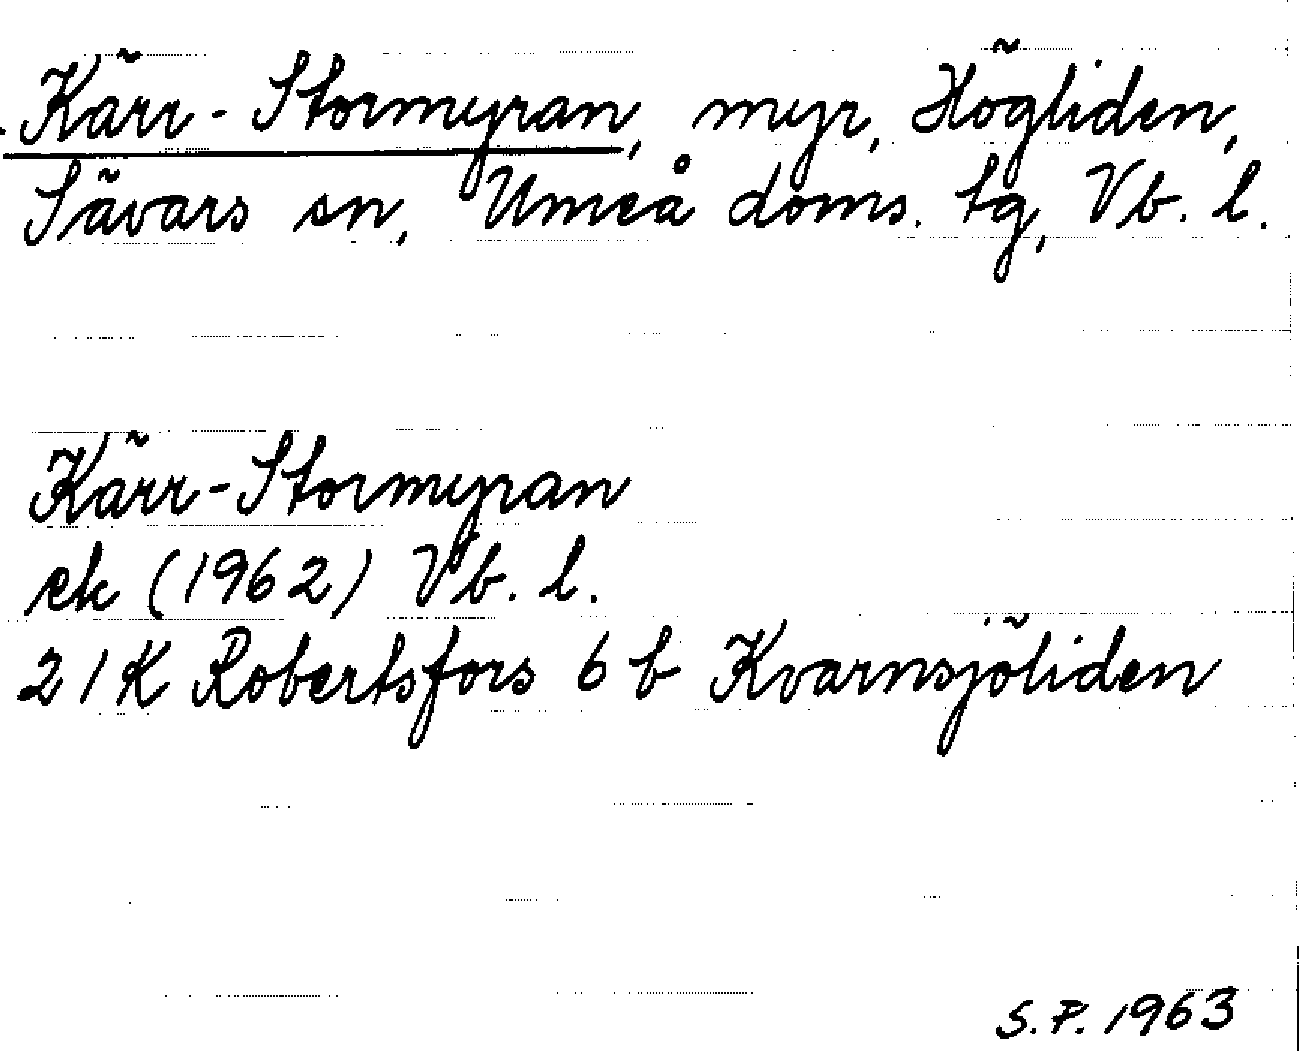 Kärr-Stormyran, myr, Högliden,
Sävars sn, Umeå doms. tg, Vb. l.
Kärr-Stormyran
ek (1962) Vb. l.
21K Robertsfors 6 b Kvarnsjöliden
S.P. 1963